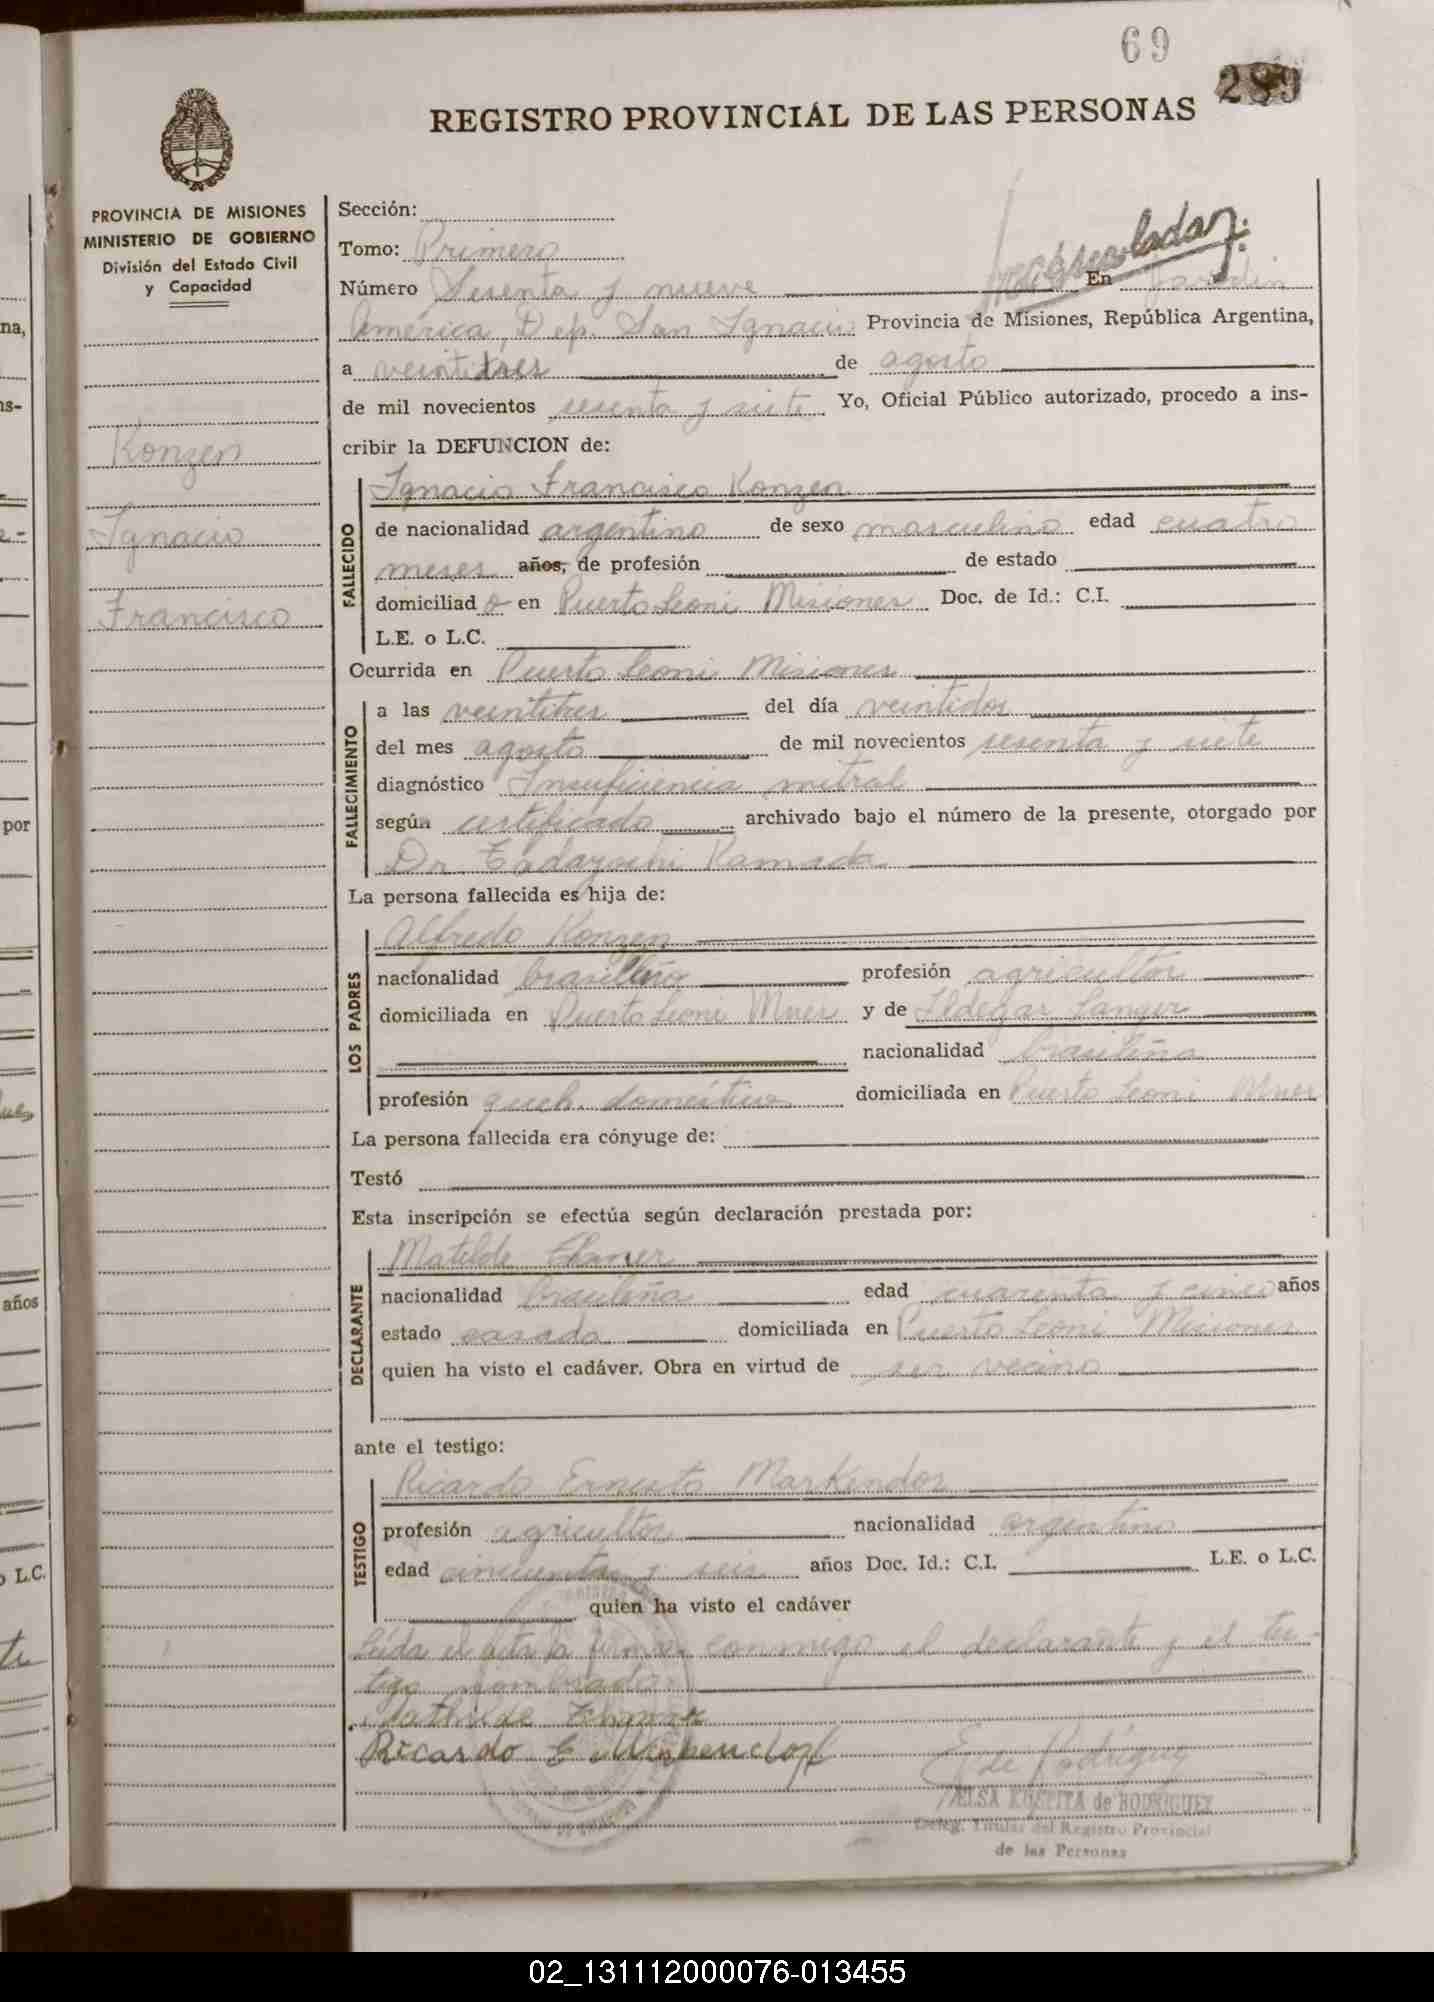 69
289
REGISTRO PROVINCIAL DE LAS PERSONAS
PROVINCIA DE MISIONES
MINISTERIO DE GOBIERNO
División del Estado Civil
y Capacidad
Konzen
Ignacio
Francisco
Sección:
Tomo: Primero
Número Sesenta y nueve En Jardín
América, Dep. San Ignacio Provincia de Misiones, República Argentina,
a veintitres de agosto
de mil novecientos sesenta y siete Yo, Oficial Público autorizado, procedo a ins-
cribir la DEFUNCION de:
FALLECIDO
Ignacio Francisco Konzen
de nacionalidad argentino de sexo masculino edad cuatro
meses años, de profesión de estado
domiciliad o en Puerto Leoni Misiones Doc. de Id.: C.I.
L.E. o L.C.
Ocurrida en Puerto Leoni Misiones
FALLECIMIENTO
a las veintitres del día veintidos
del mes agosto de mil novecientos sesenta y siete
diagnóstico Insuficiencia mitral
según certificado archivado bajo el número de la presente, otorgado por
Dr. Tadayoshi Kamada
La persona fallecida es hija de:
LOS PADRES
Alfredo Konzen
nacionalidad brasileño profesión agricultor
domiciliada en Puerto Leoni Mnes y de Ildegar Langer
nacionalidad brasileña
profesión queh. domésticos domiciliada en Puerto Leoni Mnes
La persona fallecida era cónyuge de:
Testó
Esta inscripción se efectúa según declaración prestada por:
DECLARANTE
Matilde
nacionalidad brasileña edad cuarenta y cinco años
estado casada domiciliada en Puerto Leoni Misiones
quien ha visto el cadáver. Obra en virtud de ser vecino
ante el testigo:
TESTIGO
Ricardo Ernesto Markendor
profesión agricultor nacionalidad argentino
edad cincuenta y seis años Doc. Id.: C.I. L.E. o L.C.
quien ha visto el cadáver
Leída el acta la firman conmigo el declarante y el tes-
tigo nombrado.
Ricardo E
E de Rodríguez
ELSA KOSPITA de RODRIGUEZ
Deleg. Titular del Registro Provincial
de las Personas
02_131112000076-013455